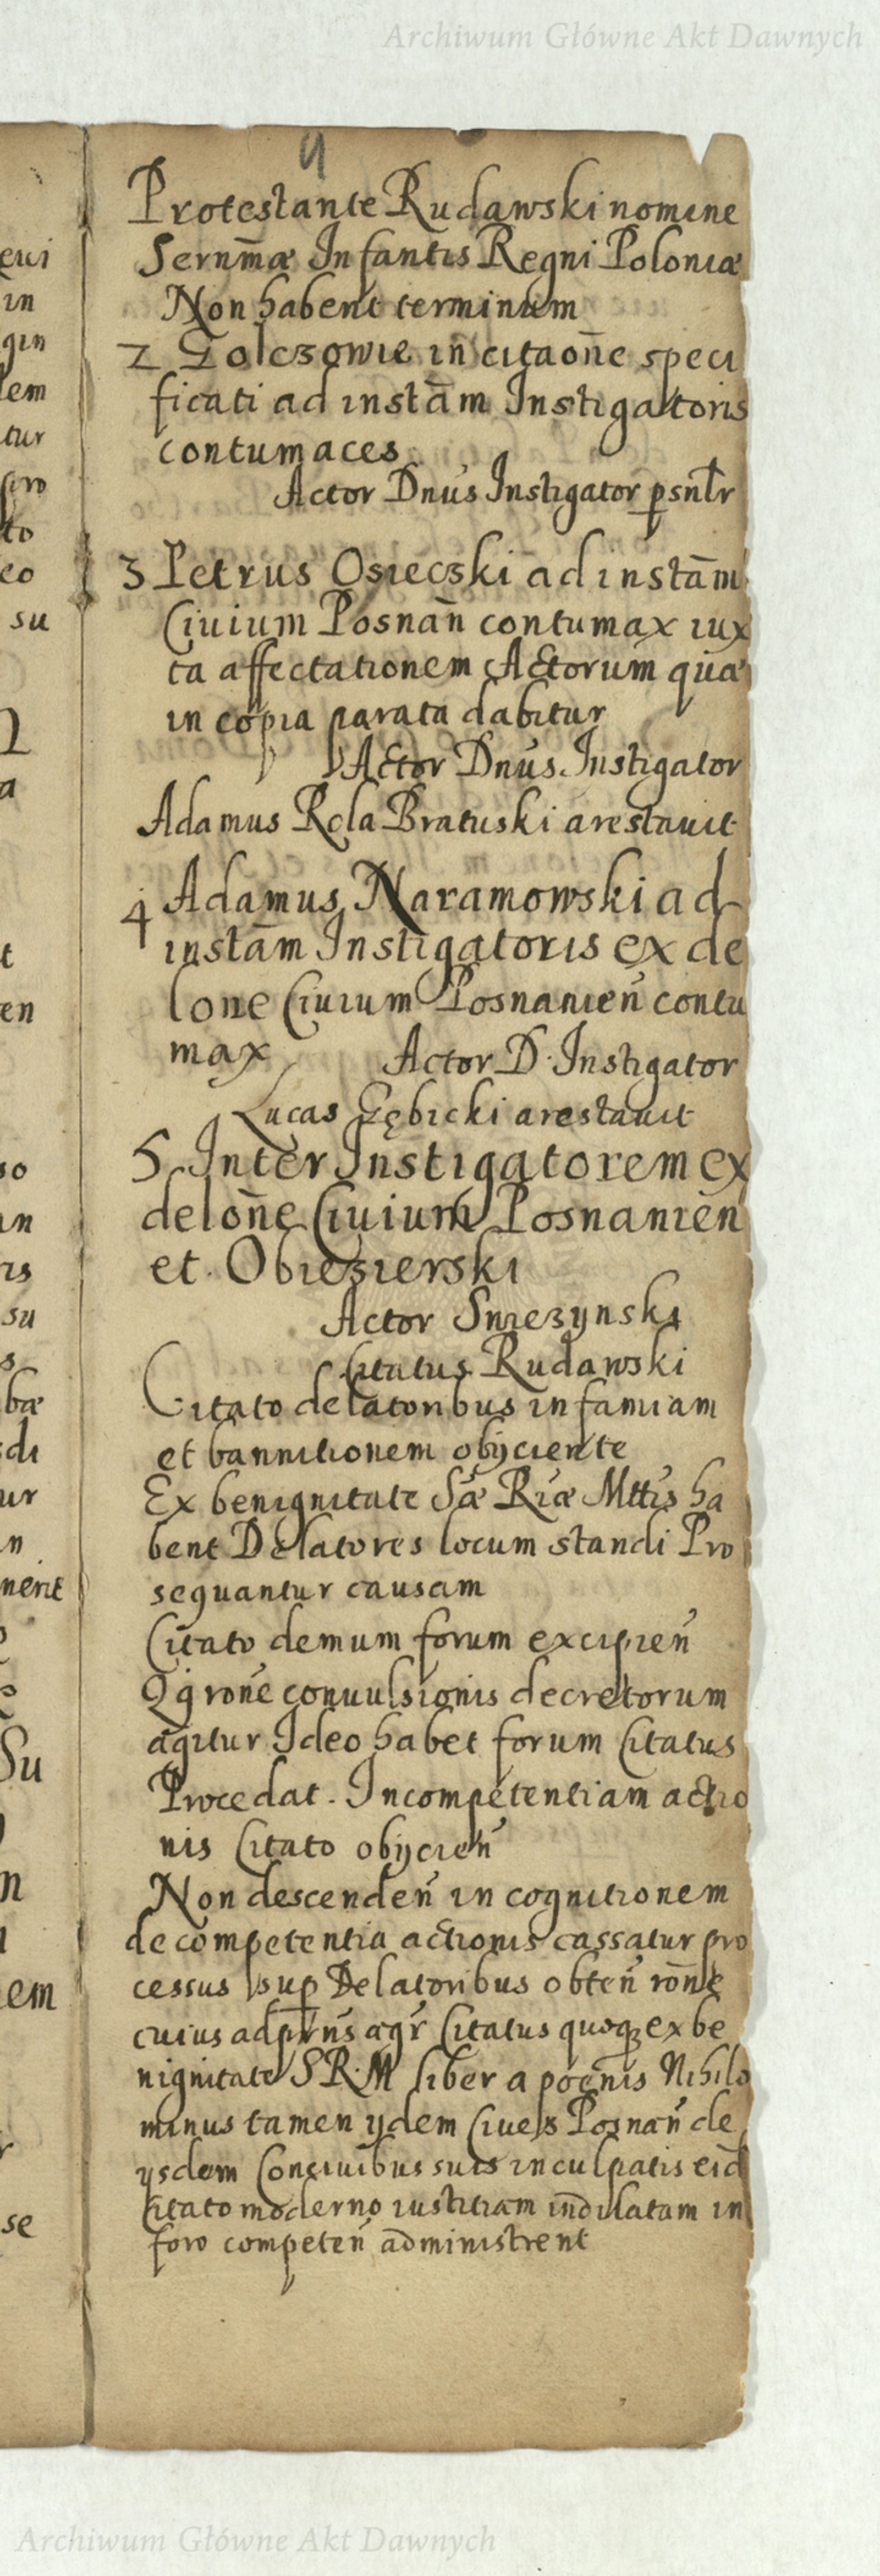 Archiwum Główne Akt Dawnych
4
Protestante Rudawski nomine
Sernm̃æ Infantis Regni Poloniæ
Non habent terminum
2 Golczowie in citaõne speci
ficati ad instãm Instigatoris
contumaces
Actor Dnus Instigator psnlr
3 Petrus Osieczki ad instãm
Ciuium Posnañ contumax iux
ta affectationem Actorum quæ
in copia parata dabitur
Actor Dnus Instigator
Adamus Rola Bratuski arestauit
4 Adamus Naramowski ad
instãm Instigatoris ex de
lone Ciuium Posnanień contu
max Actor D. Instigator
Lucas Gębicki arestauit
5 Inter Instigatorem ex
deloñe Ciuium Posnanień
et Obiezierski
Actor Sniezynski
Citatus Rudawski
Citato delatoribus infamiam
et bannitionem obijciente
Ex benignitate Sæ Riæ Mttis ha
bent Delatores locum standi Pro
sequantur causam
Citato demum forum excipień
Qg rone conuulsionis decretorum
agitur Ideo habet forum Citatus
Procedat. Incompetentiam actio
nis Citato obijcień
Non descendeń in cognitionem
de competentia actionis cassatur pro
cessus sup Delatoribus obteń rone
cuius ad prns agr Citatus quoq ex be
nignitate S R M liber a poenis Nihilo
minus tamen ijdem Ciues Posnań de
ijsdem Conciuibus suis inculpatis eid
Citato moderno iustitiam indilatam in
foro competeń administrent
Archiwum Główne Akt Dawnych